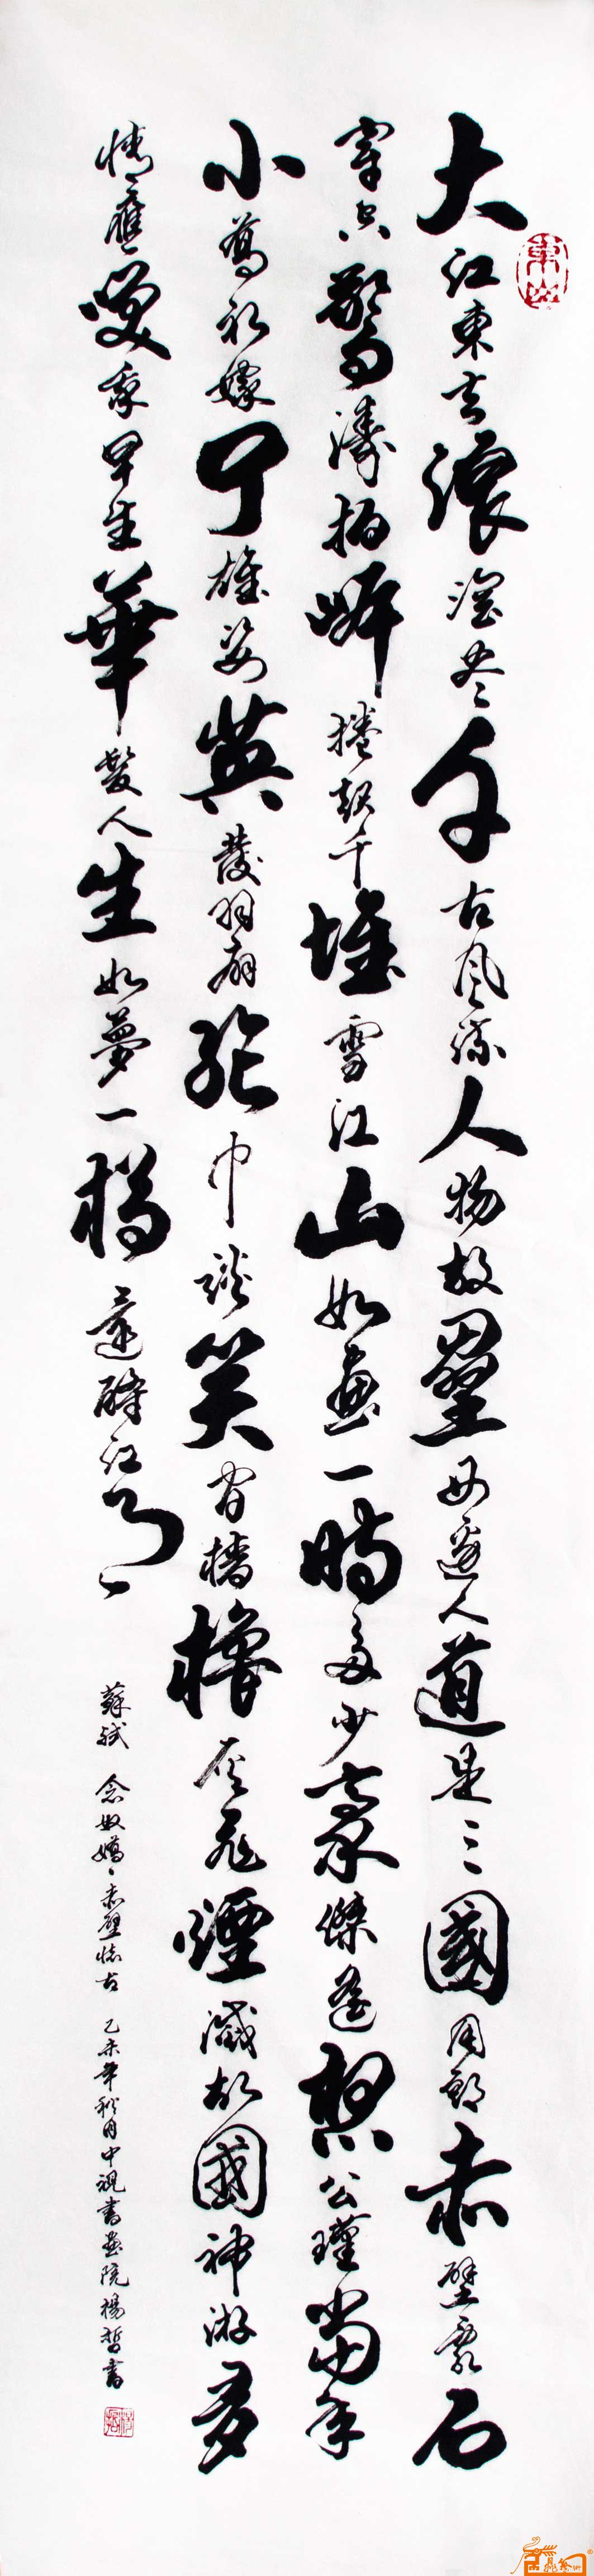 大江東去浪淘尽千古風流人物故壘西邊人道是三國周郎赤壁亂石
穿空驚濤拍岸捲起千堆雪江山如畫一時多少豪傑遙想公瑾當年
小喬初嫁了雄姿英發羽扇綸巾談笑間檣櫓灰飛煙滅故國神游多
情應笑我早生華髮人生如夢一樽還酹江月
蘇軾 念奴嬌、赤壁懷古 乙未年秋月中視書畫院楊哲書